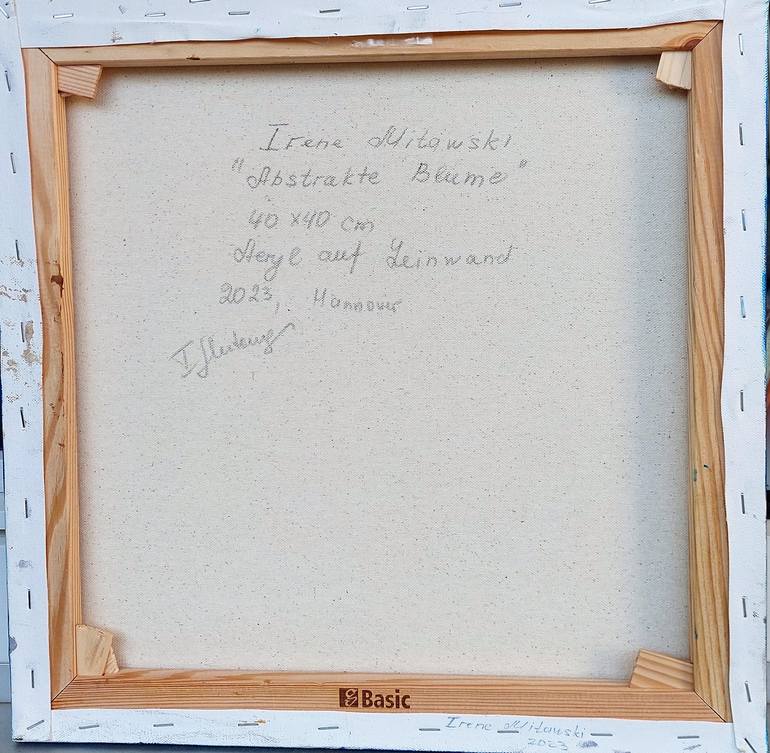 Irene Mitawski
"Abstrakte Blume"
40 x 40 cm
Acryl auf Leinwand
2023, Hannover
Basic
Irene Mitawski
2023